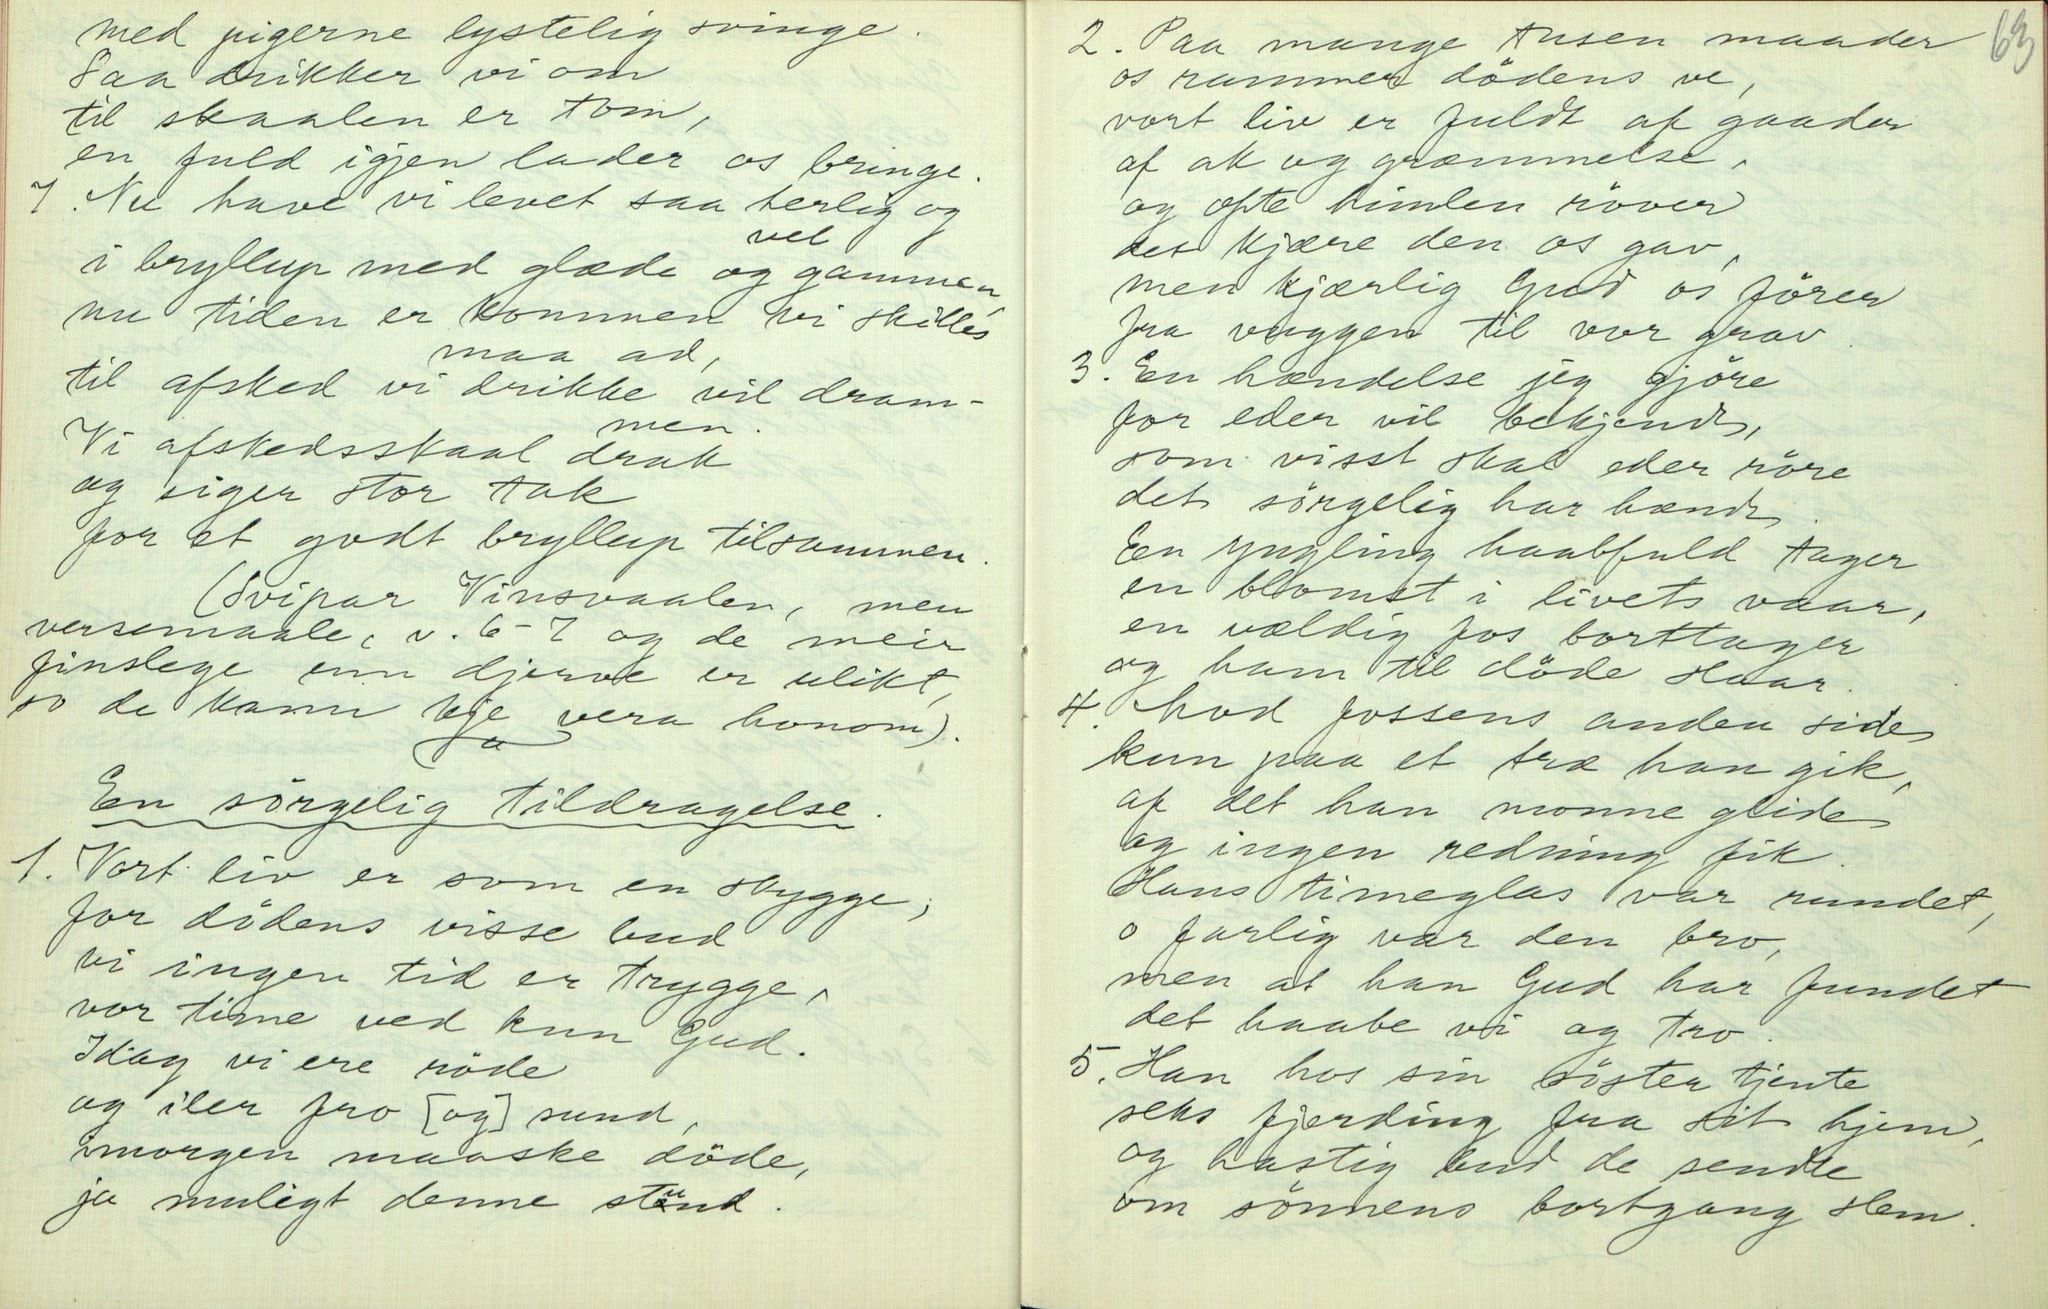 med pigerne lystelig svinge.
Saa drikker vi om
til skaalen er tom,
en fuld igjen lader os bringe.
7. Nu have vi levet saa herlig og
vel
i bryllup med glæde og gammen,
nu tiden er kommen vi skilles
maa ad,
til afsked vi drikke vil dram-
men.
Vi afskedsskaal drak
og siger stor tak
for et godt bryllup tilsammen.
(Svipar Vinsvaalen, men
versemaale, v. 6-7 og de meir
finslege enn djerve er ulikt,
so de kann ikje vera honom).
a
En sörgelig tildragelse.
1. Vort liv er som en skygge,
for dödens visse bud
vi ingen tid er trygge,
vor time ved kun Gud.
Idag vi ere röde
og iler fro [og] sund,
imorgen maaske döde,
ja muligt denne stund.
63
2. Paa mange tusen maader
os rammer dödens ve,
vort liv er fuldt af gaader
af ak og græmmelse,
og ofte himlen röver
det kjære den os gav,
men kjærlig Gud os förer
fra vuggen til vor grav.
3. En hændelse jeg gjöre
for eder vil bekjendt,
som visst skal eder röre
det sörgelig har hændt.
En yngling haabfuld tager
en blomst i livets vaar,
en vældig fos borttager
og ham til döde slaar.
4. Mod fossens anden side
kun paa et træ han gik,
af det han monne glide
og ingen redning fik.
Hans timeglas var rundet,
o farlig var den bro,
men at han Gud har fundet
det haabe vi og tro.
5. Han hos sin söster tjente
seks fjerding fra sit hjem,
og hastig bud de sendte
om sönnens bortgang slem.